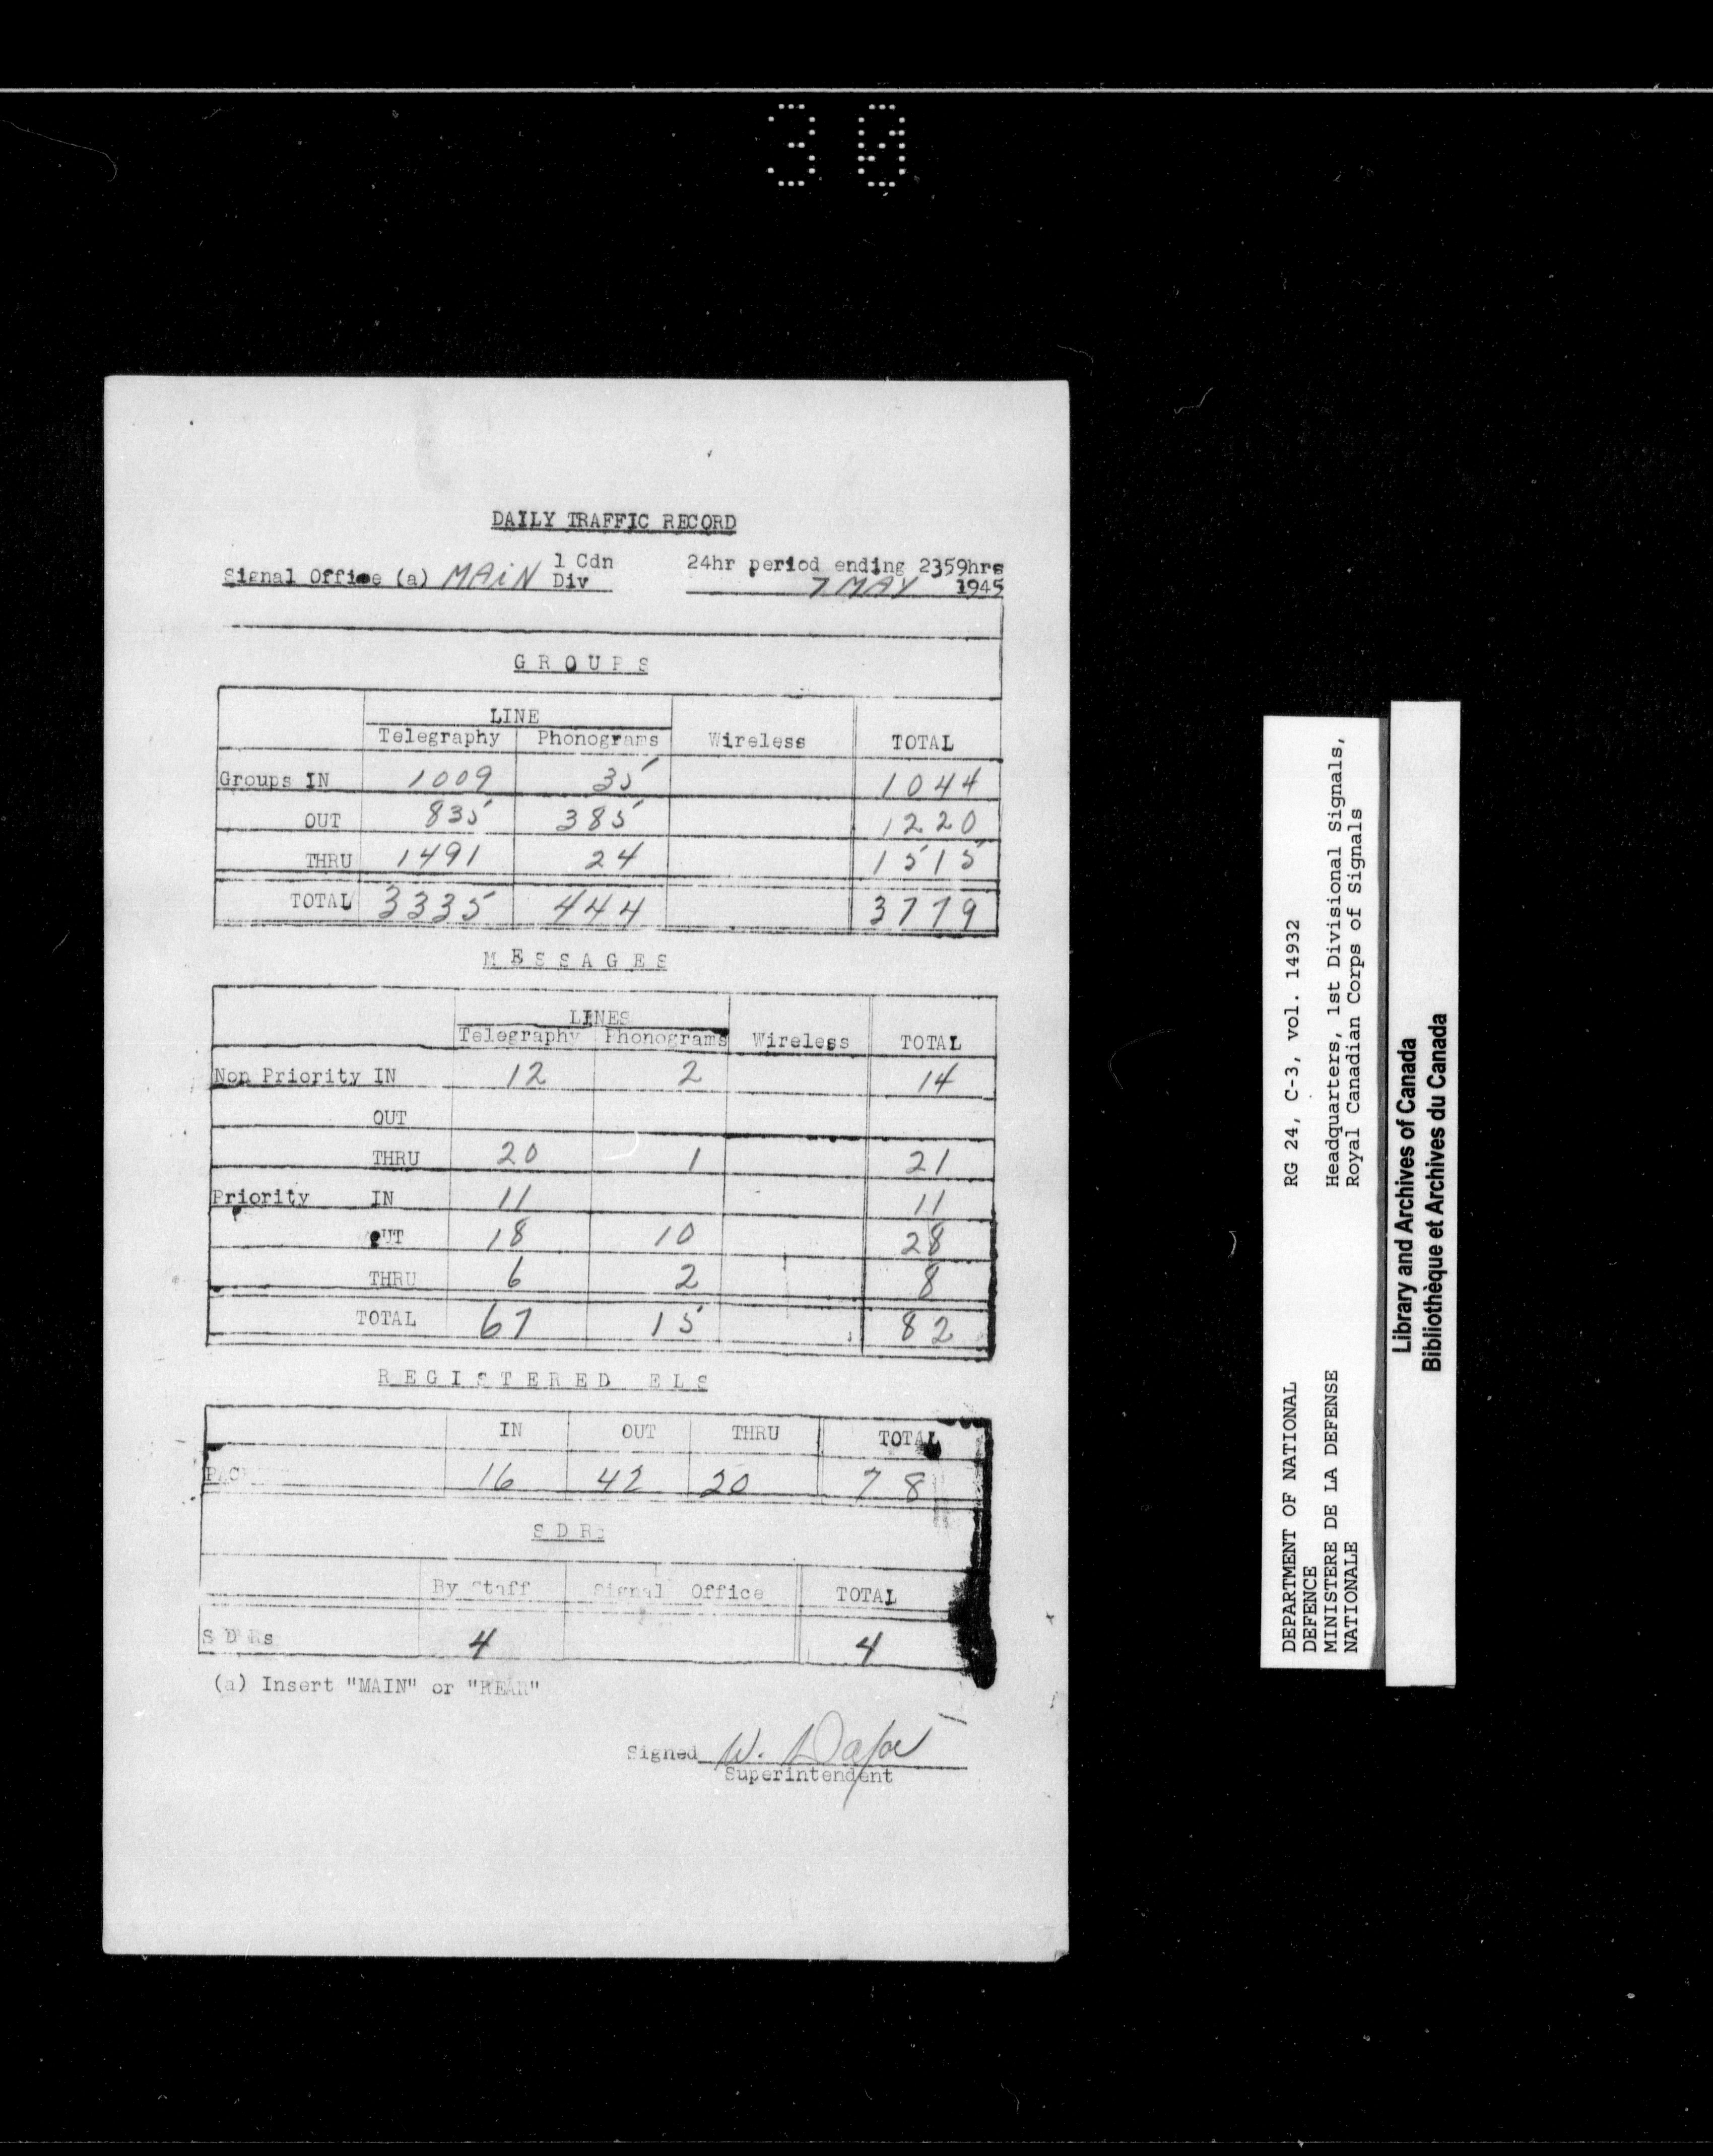 30
DAILY TRAFFIC RECORD
Signal Office (a) MAIN 1 Cdn Div
24hr period ending 2359hrs
7 MAY 1945
GROUPS
LINE
Telegraphy Phonograms Wireless TOTAL
Groups IN 1009 35 1044
OUT 835 385 1220
THRU 1491 24 1515
TOTAL 3335 444 3779
MESSAGES
LINES
Telegraphy Phonograms Wireless TOTAL
Non Priority IN 12 2 14
OUT
THRU 20 1 21
Priority IN 11 11
OUT 18 10 28
THRU 6 2 8
TOTAL 67 15 82
REGISTERED ELS
IN OUT THRU TOTAL
16 42 20 78
S D Rs
By Staff Signal Office TOTAL
S D Rs 4 4
(a) Insert "MAIN" or "REAR"
Signed W.
Superintendent
DEPARTMENT OF NATIONAL DEFENCE
MINISTERE DE LA DEFENSE NATIONALE
RG 24, C-3, vol. 14932
Headquarters, 1st Divisional Signals,
Royal Canadian Corps of Signals
Library and Archives of Canada
Bibliothèque et Archives du Canada